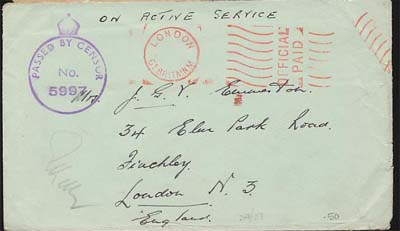 ON ACTIVE SERVICE
PASSED BY CENSOR
No.
5997
LONDON
GT. BRITAIN
OFFICIAL
PAID
Mrs. J. G. V.
34 Elm Park Road.
Finchley.
London N. 3.
England.
.50